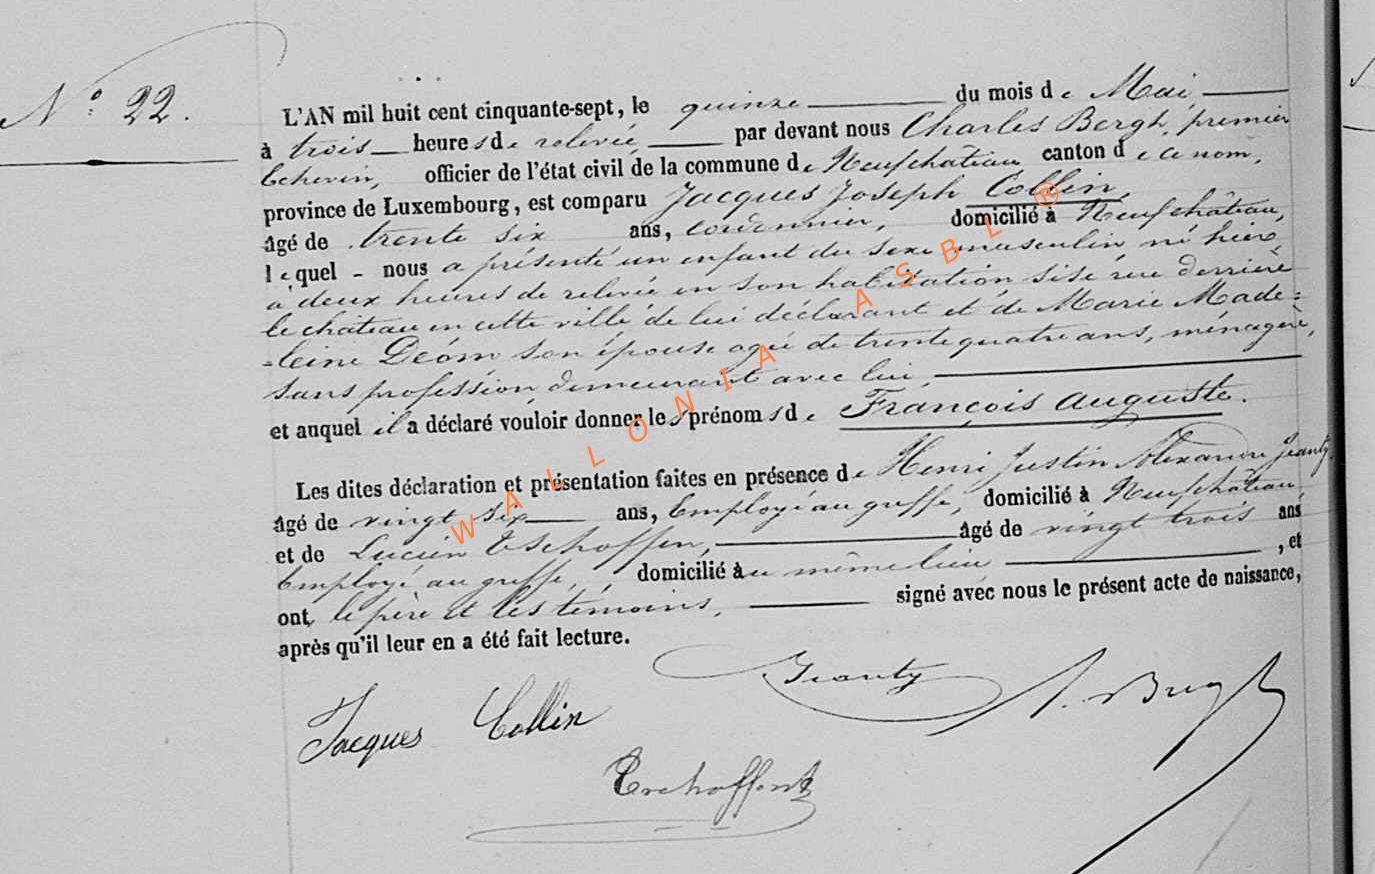 N° 22.
L'AN mil huit cent cinquante-sept, le quinze du mois de Mai
à trois heures de relevée, par devant nous Charles Bergh, premier
Echevin, officier de l'état civil de la commune de Neufchâteau canton de ce nom,
province de Luxembourg, est comparu Jacques Joseph Collin,
âgé de trente six ans, cordonnier, domicilié à Neufchâteau,
lequel - nous a présenté un enfant du sexe masculin né hier,
à deux heures de relevée en son habitation sise rue derrière
le château en cette ville de lui déclarant et de Marie Made=
=leine Déom son épouse agée de trente quatre ans, ménagère,
sans profession demeurant avec lui,
et auquel il a déclaré vouloir donner les prénoms de François Auguste.
Les dites déclaration et présentation faites en présence de Henri Justin Alexandre Jeanty
âgé de vingt six ans, Employé au greffe, domicilié à Neufchâteau
et de Lucien Tschoffen, âgé de vingt trois ans
Employé au greffe, domicilié au même lieu , et
ont, le père et les témoins, signé avec nous le présent acte de naissance,
après qu'il leur en a été fait lecture.
Jeanty
Jacques Collin
Tschoffen
WALLONIA ASBL ®